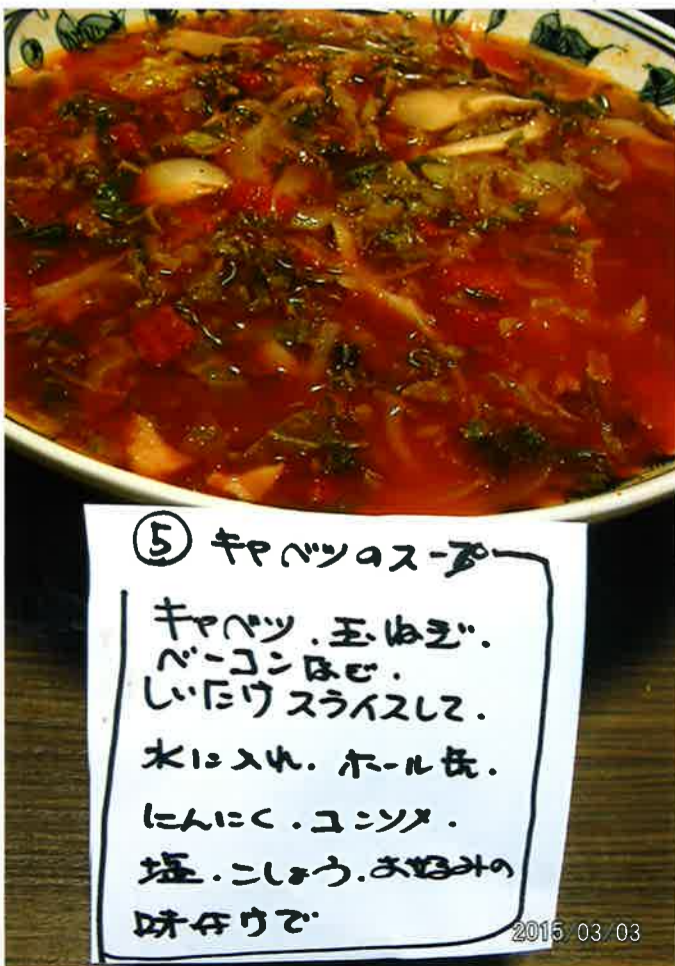 ⑤ キャベツのスープ
キャベツ.玉ねぎ.
ベーコンなど.
しいたけスライスして.
水に入れ.ホール缶.
にんにく.コンソメ.
塩.こしょう.お好みの
味付けで
2015/03/03